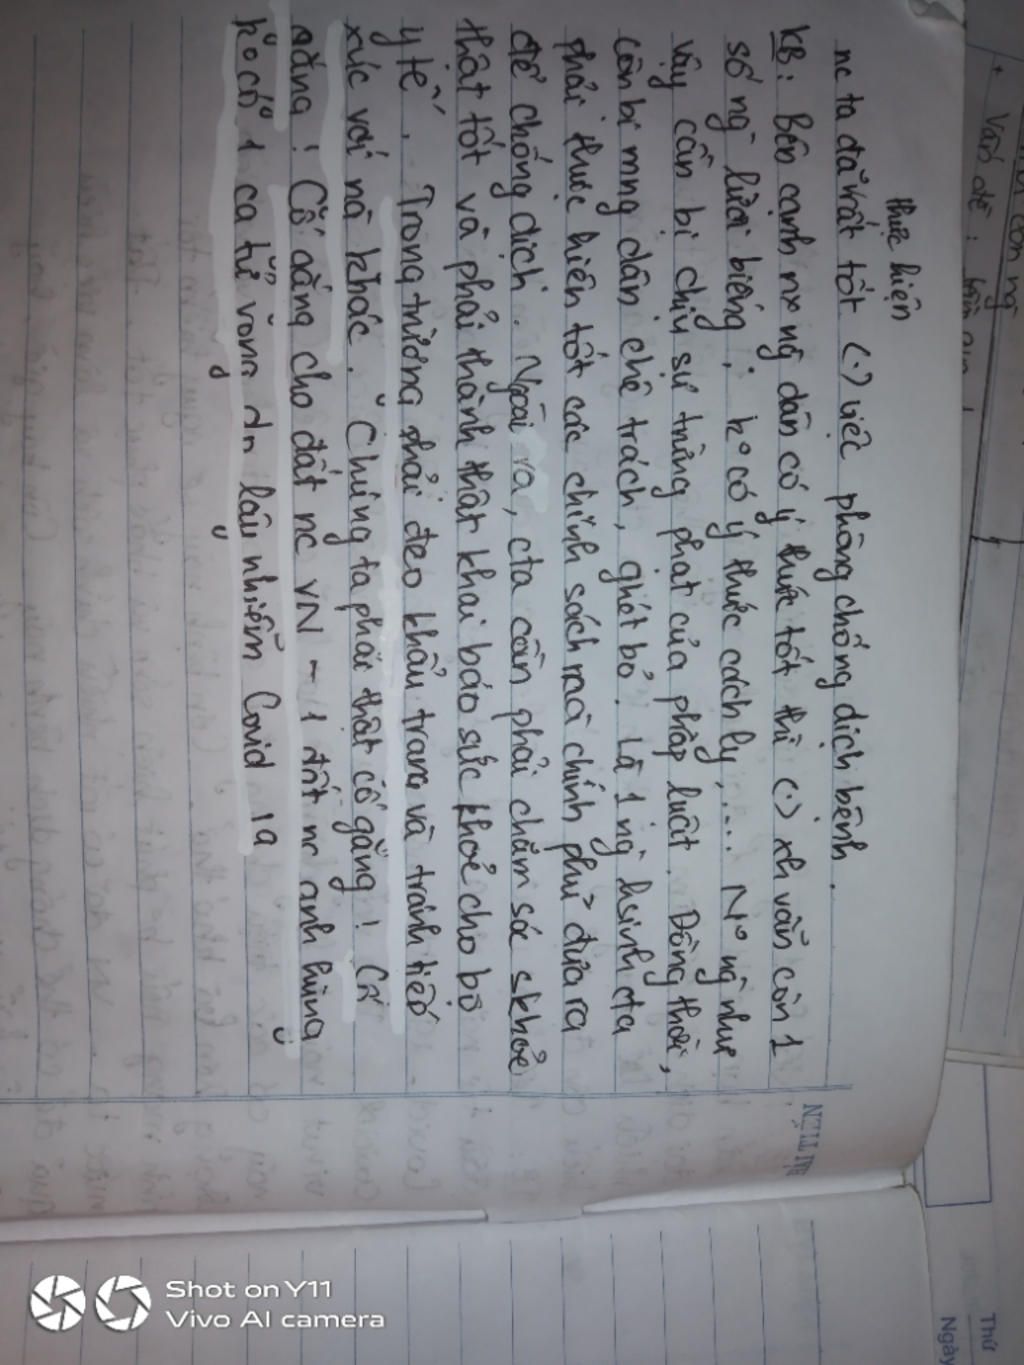 thực hiện
nc ta đã rất tốt (.) việc phòng chống dịch bệnh.
KB: Bên cạnh nx ng dân có ý thức tốt thì (.) xh vẫn còn 1
số ng lười biếng; ko có ý thức cách ly,... No ng như
vậy cần bị chịu sự trừng phạt của pháp luật. Đồng thời,
còn bị mng dân chê trách, ghét bỏ. Là 1 ng hsinh cta
phải thực hiện tốt các chính sách mà chính phủ đưa ra
để chống dịch. Ngoài ra, cta cần phải chăm sóc skhoẻ
thật tốt và phải thành thật khai báo sức khoẻ cho bộ
y tế. Trong trường phải đeo khẩu trang và tránh tiếp
xúc với nà khác. Chúng ta phải thật cố gắng! Cố
gắng! Cố gắng cho đất nc VN - 1 đất nc anh hùng
ko có 1 ca tử vong do lây nhiễm Covid 19
+ Vấn đề:
NGHĨ
Thứ
Ngày
Shot on Y11
Vivo AI camera